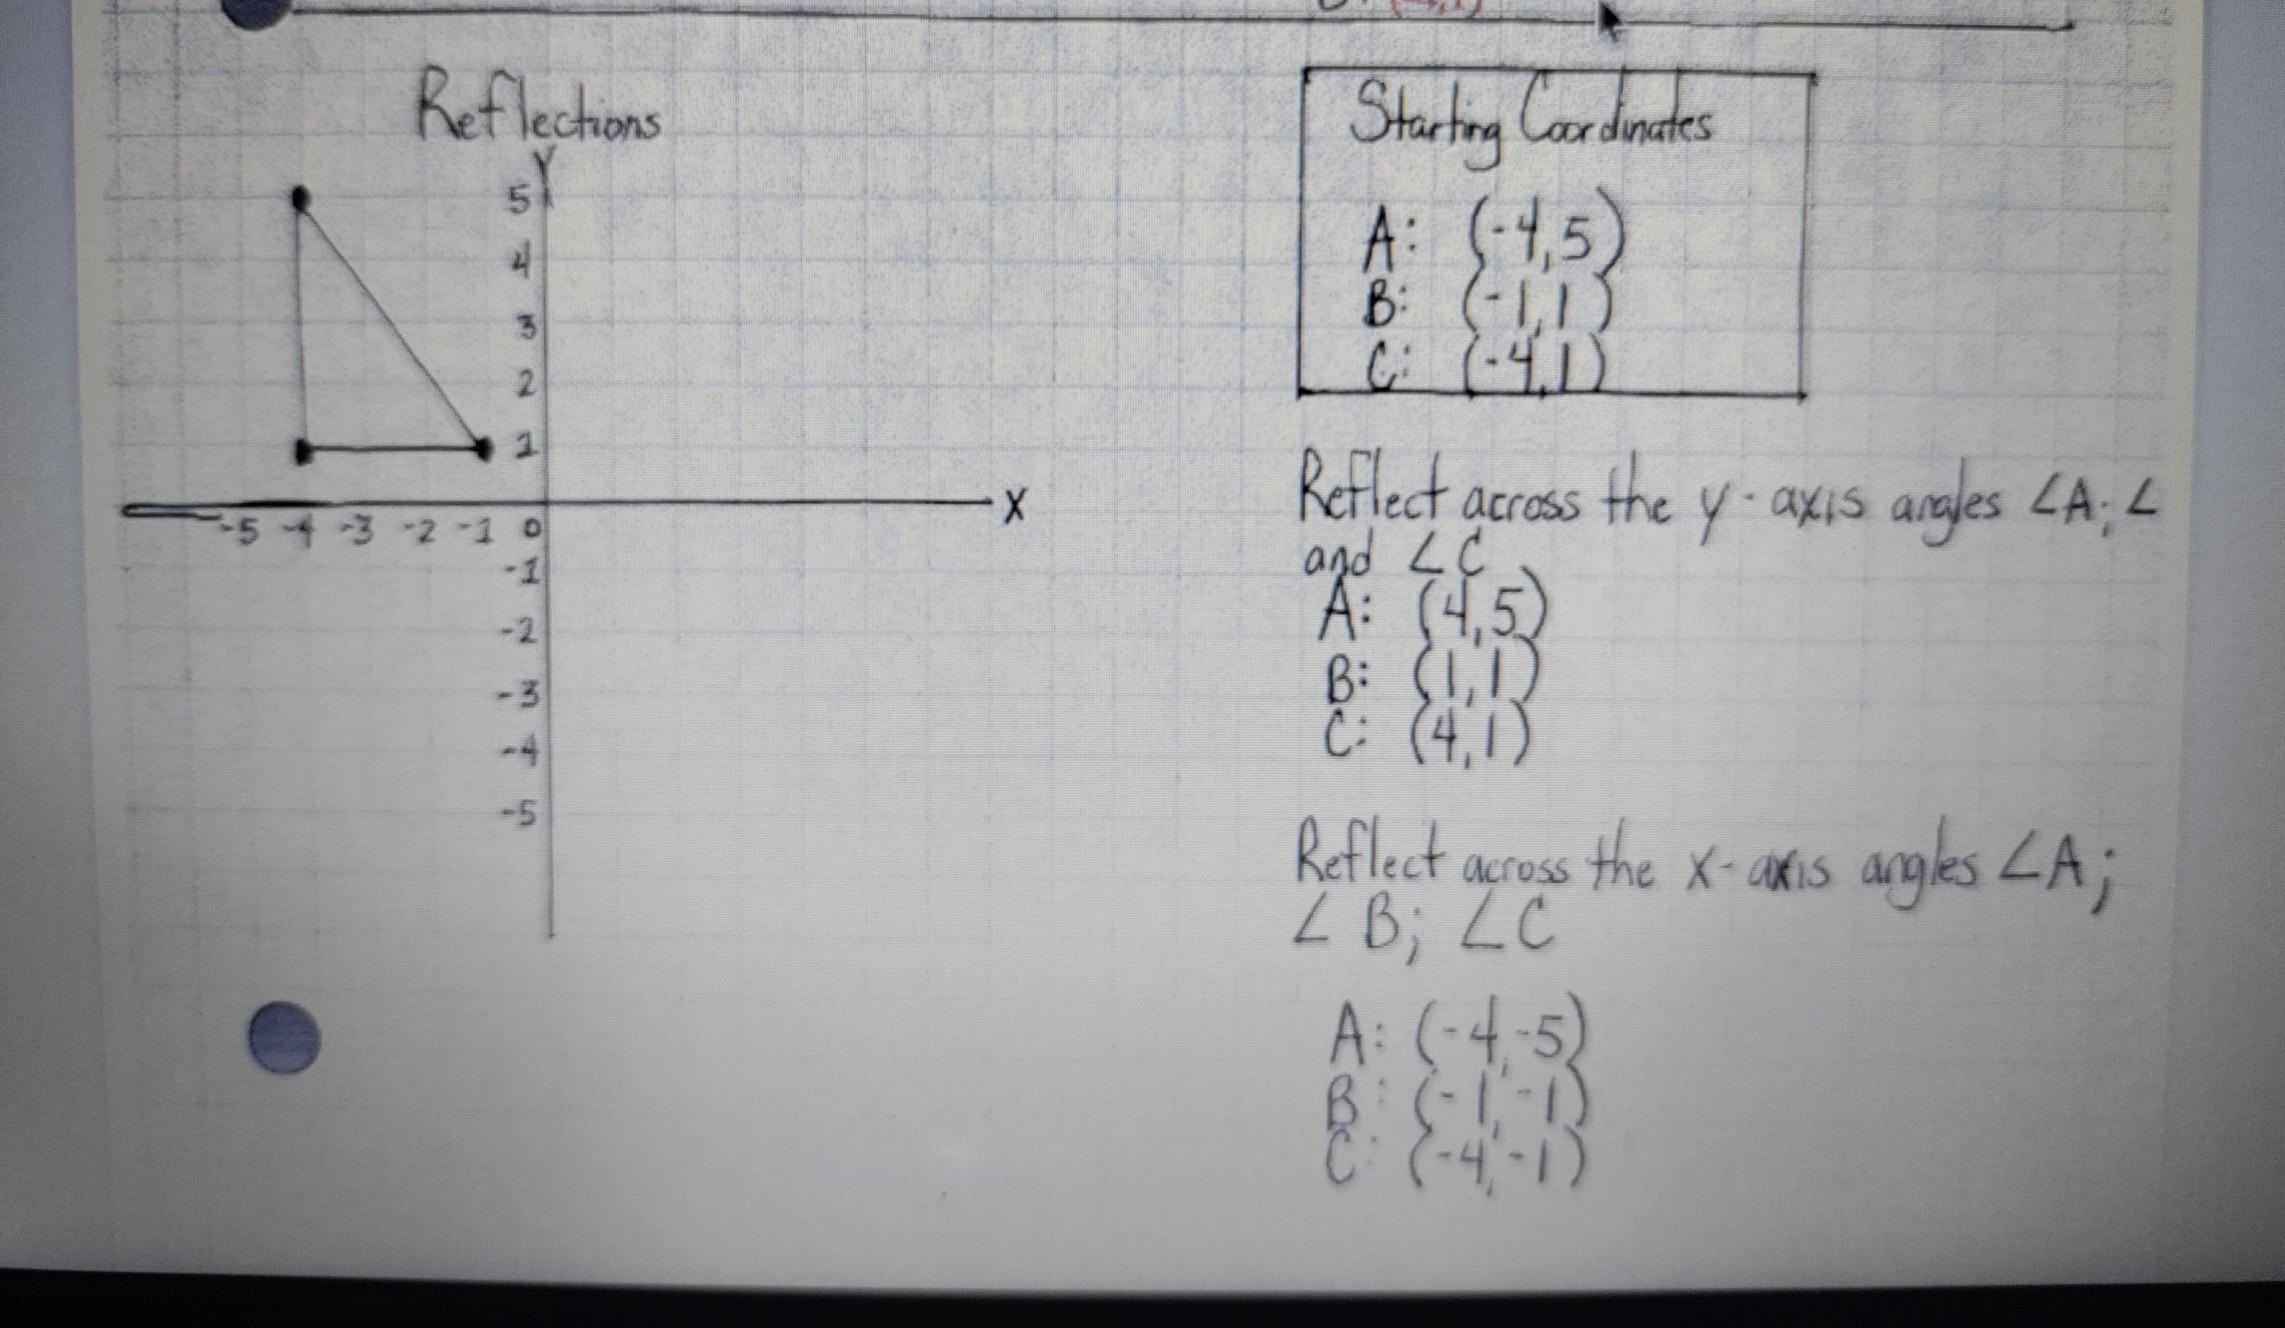 Reflections
Y
5
4
3
2
1
-5 -4 -3 -2 -1 0
X
-1
-2
-3
-4
-5
Starting Coordinates
A: (-4,5)
B: (-1,1)
C: (-4,1)
Reflect across the y-axis angles ∠A; ∠
and ∠C
A: (4,5)
B: (1,1)
C: (4,1)
Reflect across the x-axis angles ∠A;
∠B; ∠C
A: (-4,-5)
B: (-1,-1)
C: (-4,-1)